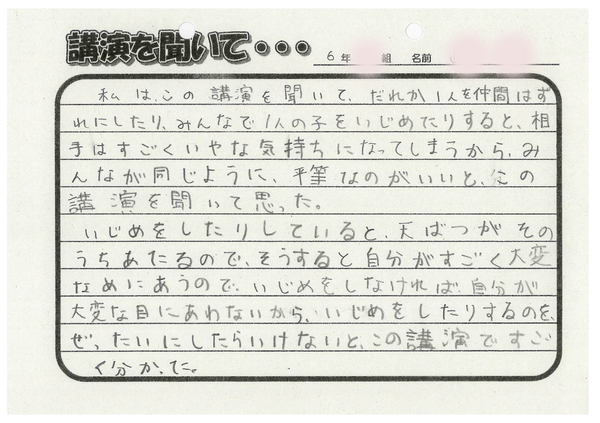 講演を聞いて・・・
6年 組 名前
私は、この講演を聞いて、だれか1人を仲間はず
れにしたり、みんなで1人の子をいじめたりすると、相
手はすごくいやな気持ちになってしまうから、み
んなが同じように、平筆なのがいいと、この
講演を聞いて思った。
いじめをしたりしていると、天ばつがその
うちあたるので、そうすると自分がすごく大変
なめにあうので、いじめをしなければ、自分が
大変な目にあわないから、いじめをしたりするのを、
ぜったいにしたらいけないと、この講演ですご
く分かった。